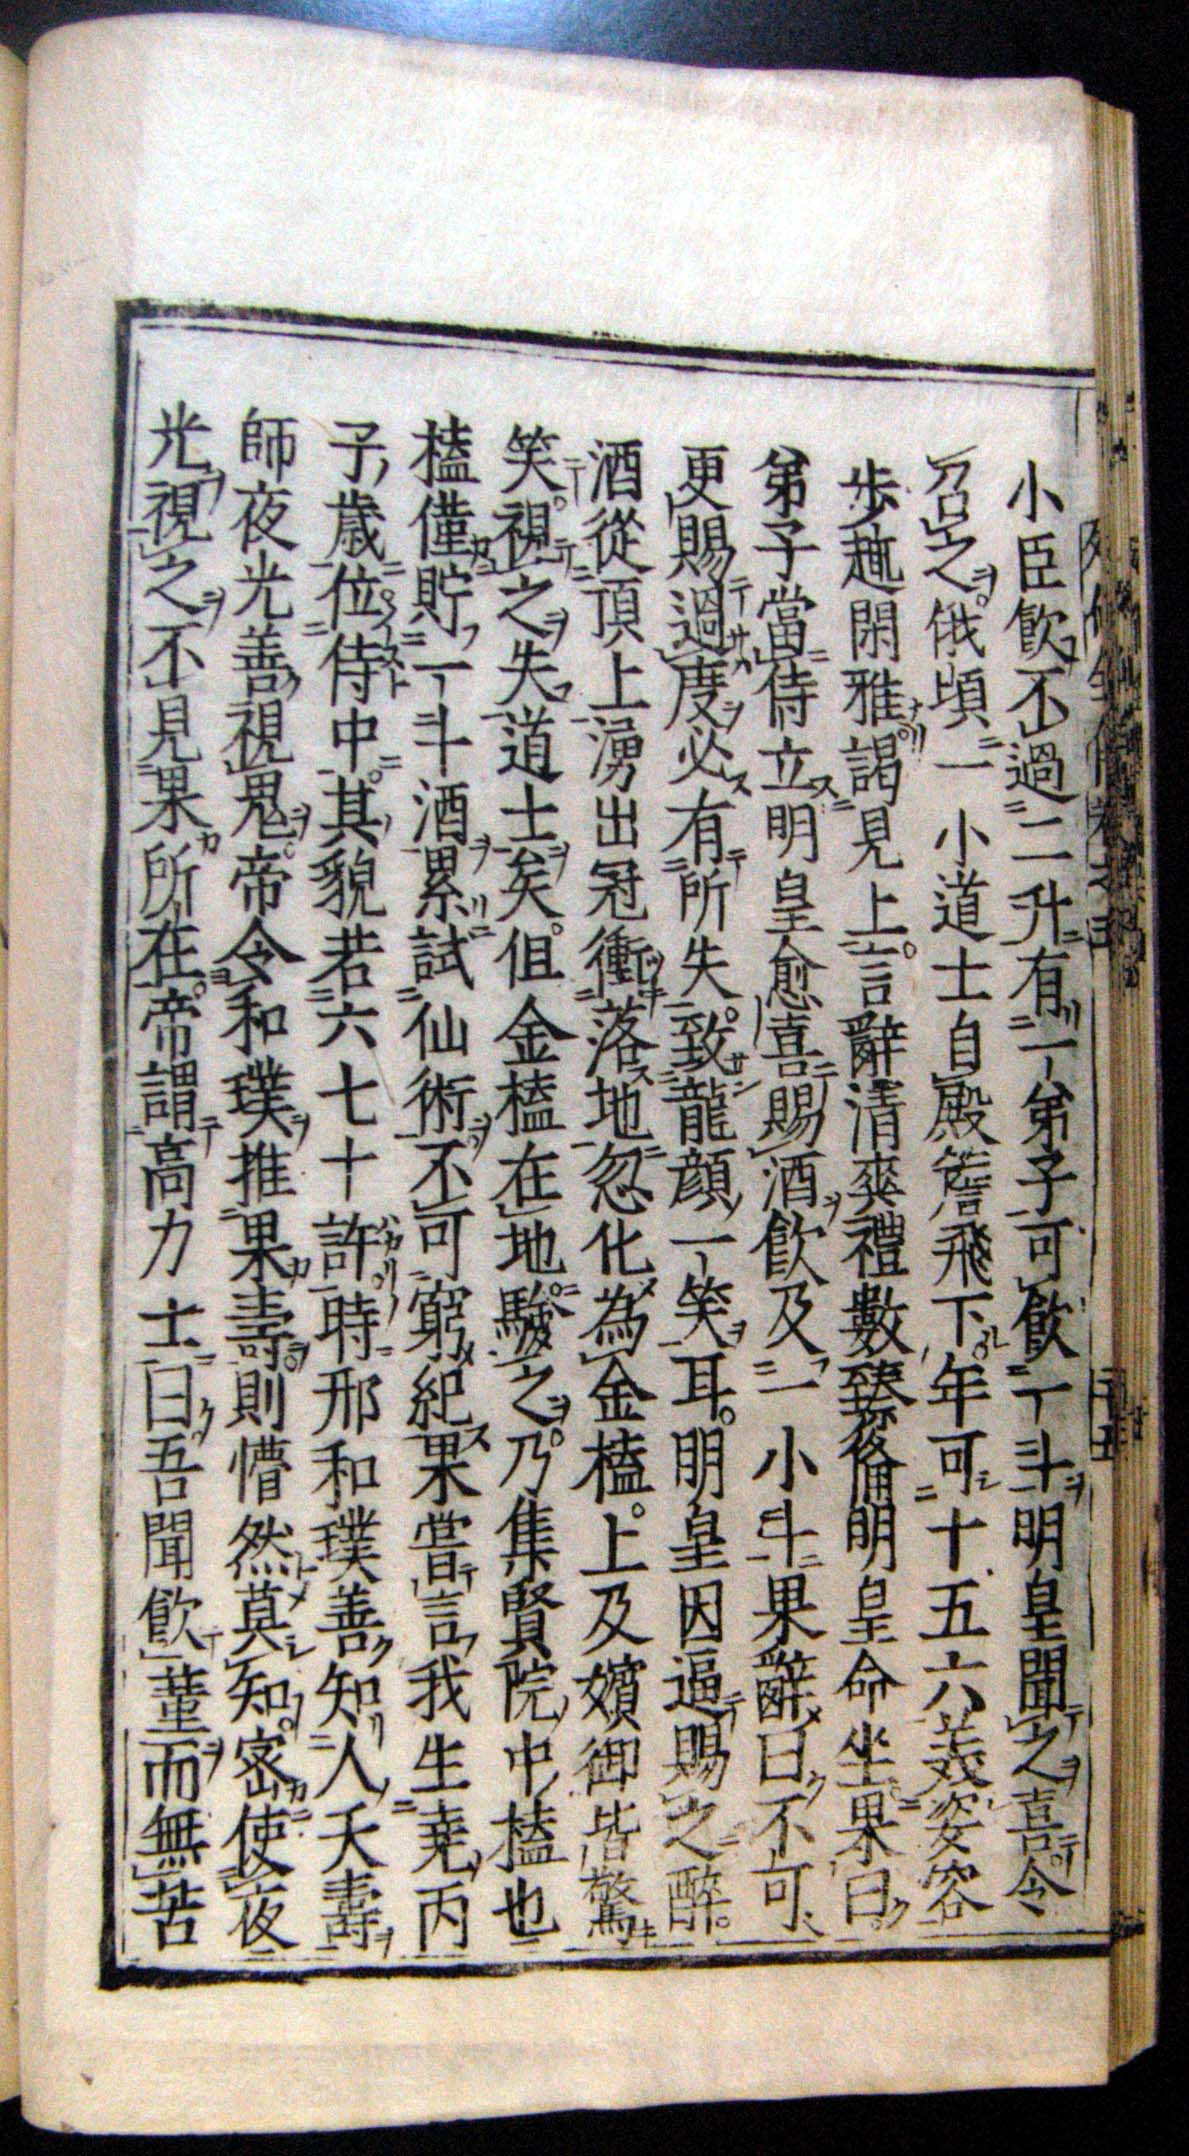 小臣飮不過二升有一弟子可飮一斗明皇聞之喜令
召之俄頃一小道士自殿簷飛下年可十五六美姿容
歩趣閑雅謁見上言辭清爽禮數臻備明皇命坐果曰
弟子當侍立明皇愈喜賜酒飮及一小斗果辭曰不可
更賜過度必有所失致龍顔一笑耳明皇因逼賜之醉
酒從頂上湧出冠衝落地忽化為金榼上及嬪御皆驚
笑視之失道士矣但金榼在地驗之乃集賢院中榼也
榼僅貯一斗酒累試仙術不可窮紀果嘗言我生堯丙
子歳位侍中其貌若六七十許時邢和璞善知人夭壽
師夜光善視鬼帝令和璞推果壽則懵然莫知密使夜
光視之不見果所在帝謂高力士曰吾聞飮菫而無苦